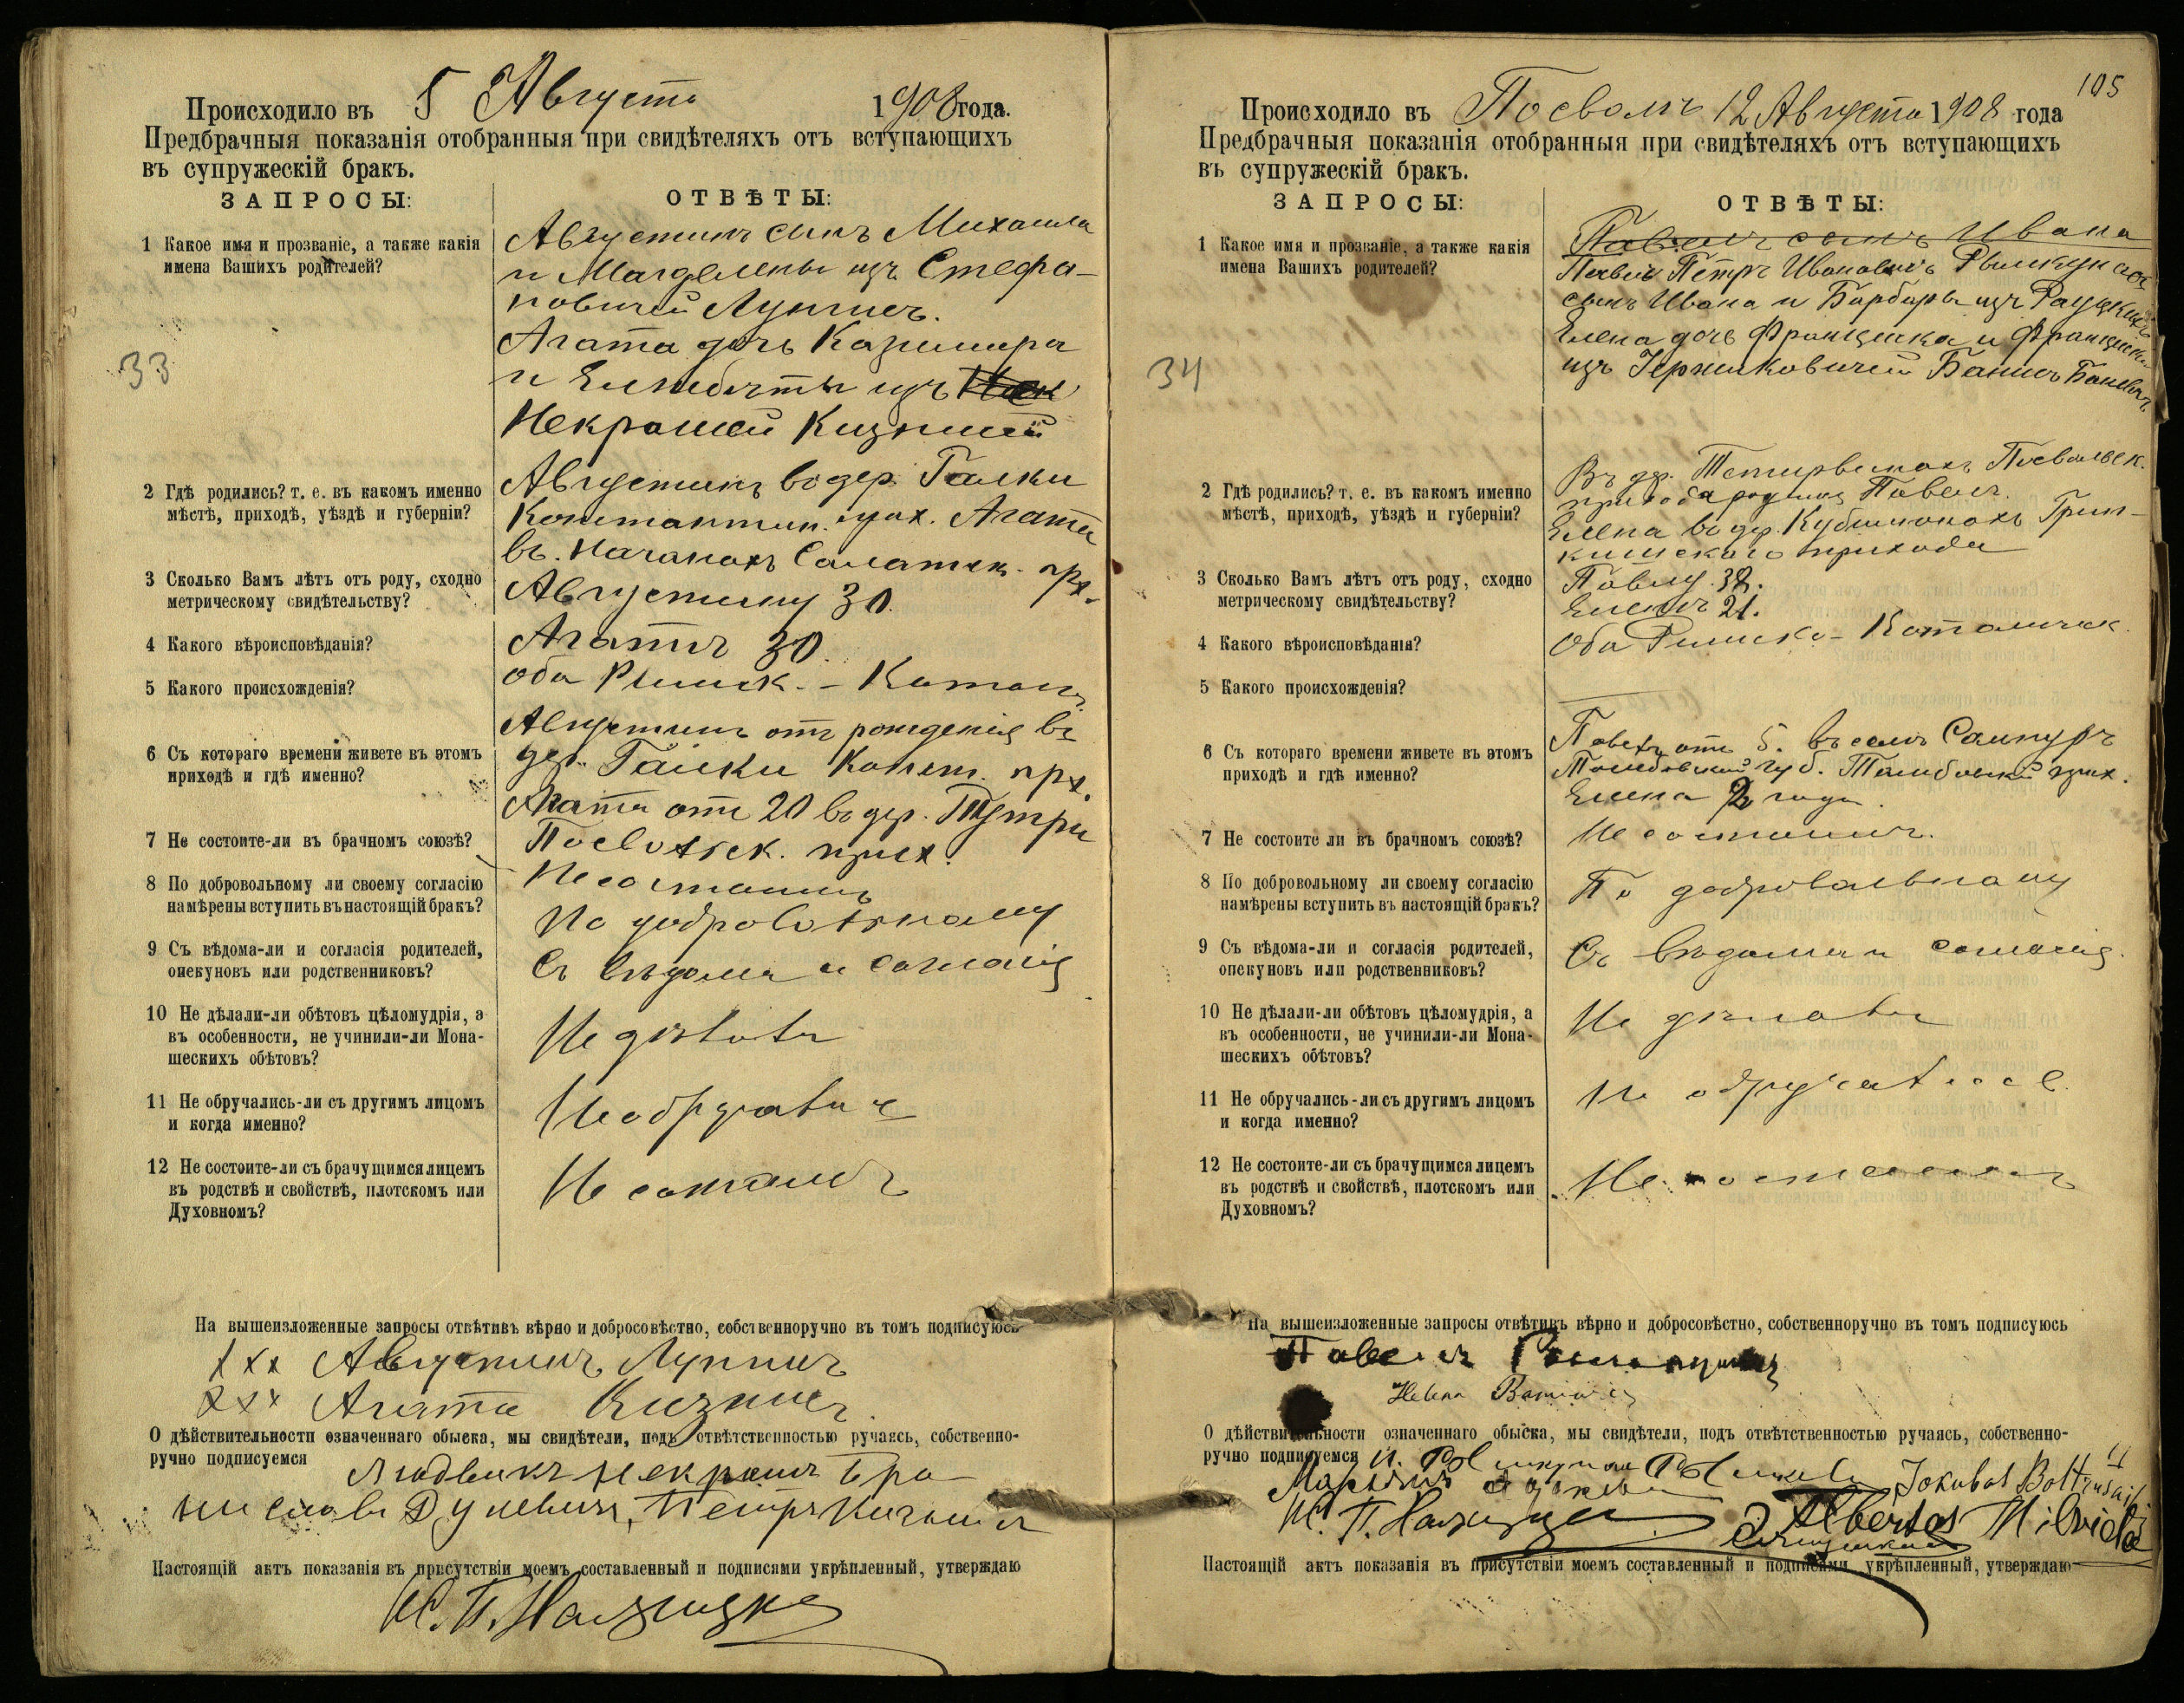 Происходило въ 5 Августа 1908 года.
Предбрачныя показанія отобранныя при свидѣтеляхъ отъ вступающихъ
въ супружескій бракъ.
ЗАПРОСЫ:
ОТВѢТЫ:
1 Какое имя и прозваніе, а также какія
имена Вашихъ родителей?
Августинъ сынъ Михаила
и Магдалены изъ Стефа-
новичей Луннисъ.
Агата дочь Казимира
и Елисабэты изъ
Некрошей
33
2 Гдѣ родились? т. е. въ какомъ именно
мѣстѣ, приходѣ, уѣздѣ и губерніи?
Августинъ въ дер. Галки
Константин. прих. Агата
въ Салатск. прх.
3 Сколько Вамъ лѣтъ отъ роду, сходно
метрическому свидѣтельству?
Августину 30.
Агатѣ 30.
4 Какого вѣроисповѣданія?
оба Римск. - Катол.
5 Какого происхожденія?
6 Съ котораго времени живете въ этомъ
приходѣ и гдѣ именно?
Августинъ отъ рожденія въ
дер. Галки Конст. прх.
Агата отъ 20 въ дер.
Посвольск. прих.
7 Не состоите-ли въ брачномъ союзѣ?
Не состоимъ
8 По добровольному ли своему согласію
намѣрены вступить въ настоящій бракъ?
По добровольному
9 Съ вѣдома-ли и согласія родителей,
опекуновъ или родственниковъ?
Съ вѣдома и согласія
10 Не дѣлали-ли обѣтовъ цѣломудрія, а
въ особенности, не учинили-ли Мона-
шескихъ обѣтовъ?
Не дѣлали
11 Не обручались-ли съ другимъ лицомъ
и когда именно?
Не обручались
12 Не состоите-ли съ брачущимся лицемъ
въ родствѣ и свойствѣ, плотскомъ или
Духовномъ?
Не состоимъ
На вышеизложенные запросы отвѣтивъ вѣрно и добросовѣстно, собственноручно въ томъ подписуюсь
xxx Августинъ Луннисъ
xxx Агата
О дѣйствительности означеннаго обыска, мы свидѣтели, подъ отвѣтственностью ручаясь, собственно-
ручно подписуемся Людвикъ Некрошъ Бро-
ниславъ Петръ
Настоящій актъ показанія въ присутствіи моемъ составленный и подписями укрѣпленный, утверждаю
105
Происходило въ Посволь 12 Августа 1908 года
Предбрачныя показанія отобранныя при свидѣтеляхъ отъ вступающихъ
въ супружескій бракъ.
ЗАПРОСЫ:
ОТВѢТЫ:
1 Какое имя и прозваніе, а также какія
имена Вашихъ родителей?
Павелъ сынъ Ивана
Павелъ Петръ Ивановичъ
сынъ Ивана и Барбары изъ
Елена дочь Францишка и Францишки
изъ
34
2 Гдѣ родились? т. е. въ какомъ именно
мѣстѣ, приходѣ, уѣздѣ и губерніи?
Въ дер. Посвольск.
прихода родился Павелъ.
Елена въ дер. Грин-
кишскаго прихода
3 Сколько Вамъ лѣтъ отъ роду, сходно
метрическому свидѣтельству?
Павлу
Еленѣ 21.
4 Какого вѣроисповѣданія?
Оба Римско-Католическ.
5 Какого происхожденія?
6 Съ котораго времени живете въ этомъ
приходѣ и гдѣ именно?
Павелъ отъ 5. въ селѣ Сампурѣ
Тамбовской губ. Тамбовскій прих.
Елена 2 года.
7 Не состоите ли въ брачномъ союзѣ?
Не состоимъ.
8 По добровольному ли своему согласію
намѣрены вступить въ настоящій бракъ?
По добровольному
9 Съ вѣдома-ли и согласія родителей,
опекуновъ или родственниковъ?
Съ вѣдома и согласія.
10 Не дѣлали-ли обѣтовъ цѣломудрія, а
въ особенности, не учинили-ли Мона-
шескихъ обѣтовъ?
Не дѣлали
11 Не обручались-ли съ другимъ лицомъ
и когда именно?
Не обручались.
12 Не состоите-ли съ брачущимся лицемъ
въ родствѣ и свойствѣ, плотскомъ или
Духовномъ?
Не состоимъ
На вышеизложенные запросы отвѣтивъ вѣрно и добросовѣстно, собственноручно въ томъ подписуюсь
Павелъ
Helena
О дѣйствительности означеннаго обыска, мы свидѣтели, подъ отвѣтственностью ручаясь, собственно-
ручно подписуемся
Jokubas
Albertas Milvidas
Настоящій актъ показанія въ присутствіи моемъ составленный и подписями укрѣпленный, утверждаю